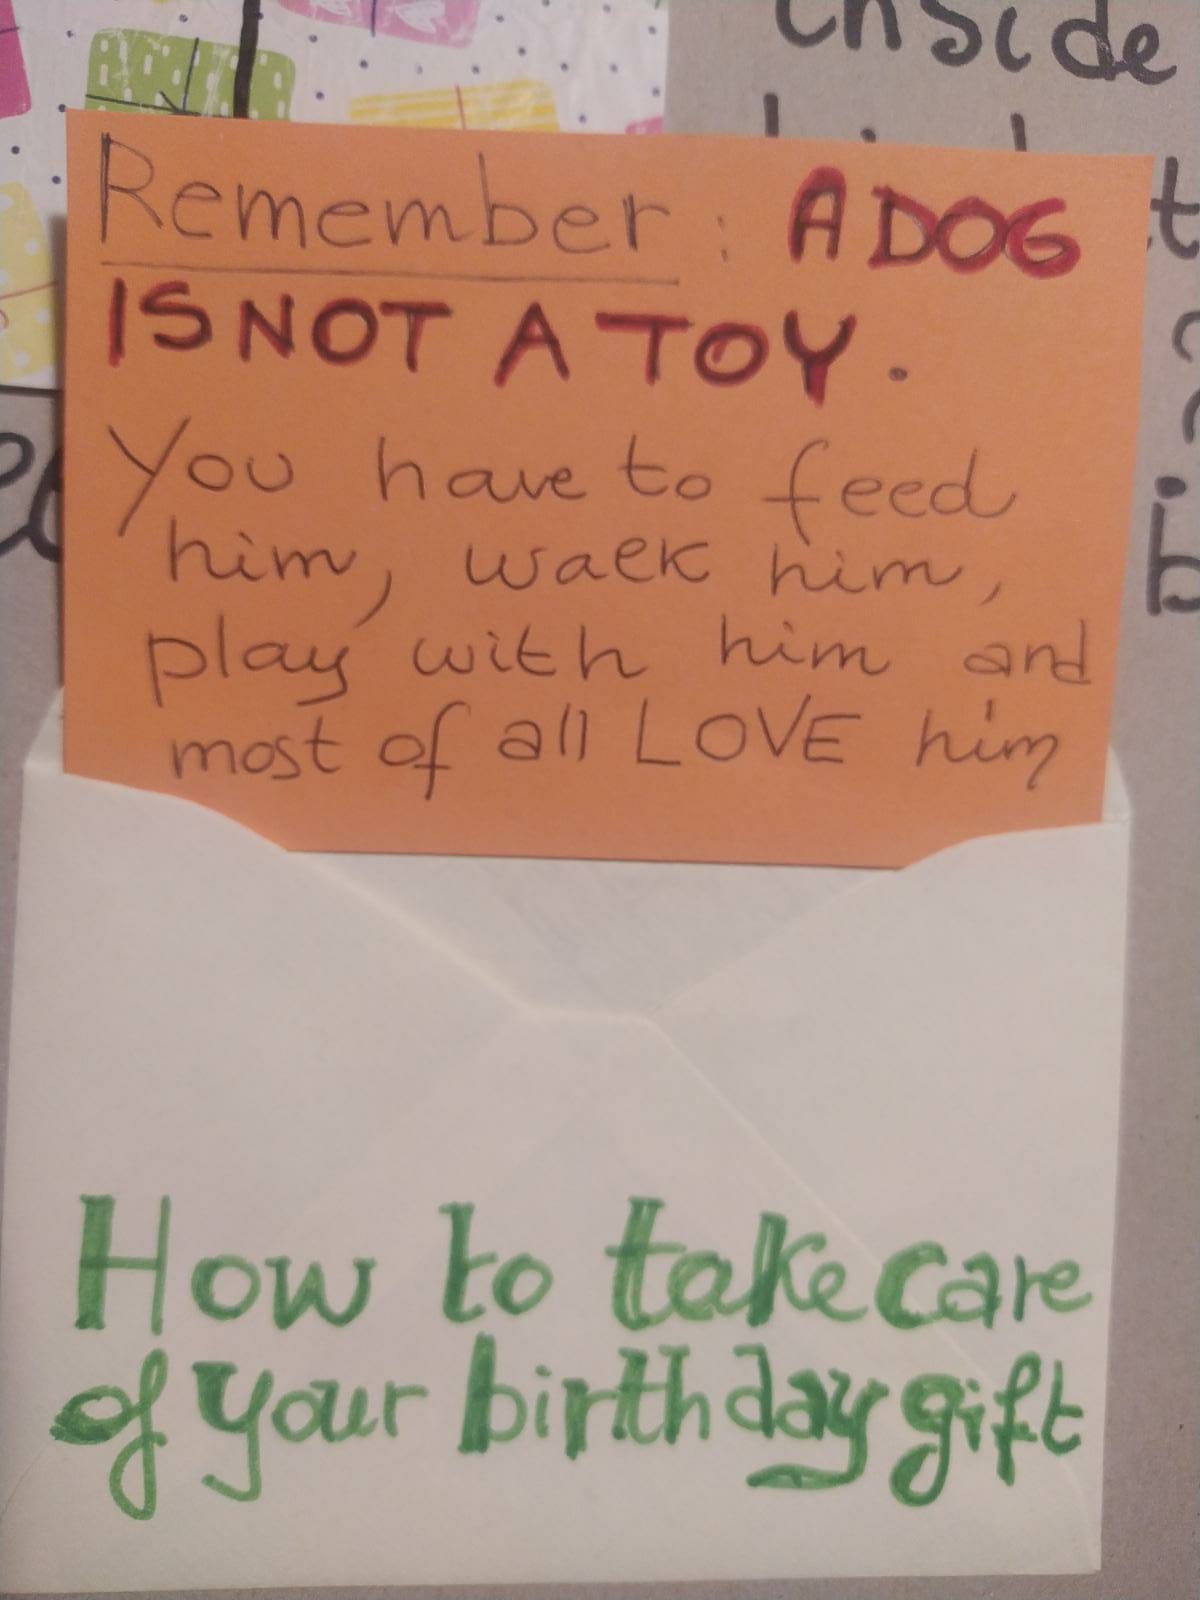 inside
Remember: A DOG
IS NOT A TOY.
You have to feed
him, walk him,
play with him and
most of all LOVE him
How to take care
of your birthday gift